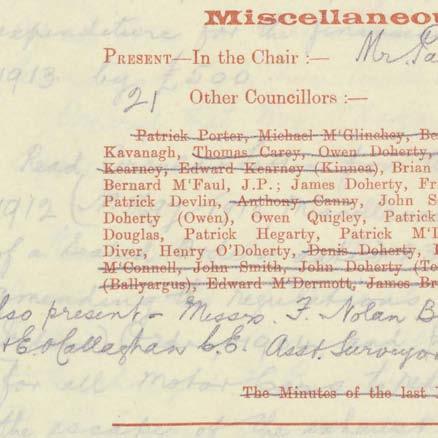 Miscellaneo
PRESENT—In the Chair :— Mr.
21 Other Councillors :—
Patrick Porter, Michael M'Glinchey, Be
Kavanagh, Thomas Carey, Owen Doherty,
Kearney, Edward Kearney (Kinnea), Brian
Bernard M'Faul, J.P.; James Doherty, Fr
Patrick Devlin, Anthony Canny, John S
Doherty (Owen), Owen Quigley, Patrick
Douglas, Patrick Hegarty, Patrick M'D
Diver, Henry O'Doherty, Denis Doherty,
M'Connell, John Smith, John Doherty (To
(Ballyargus), Edward M'Dermott, James Br
also present - Messrs. F. Nolan B
& E O'Callaghan C.E. Asst. Surveyor
The Minutes of the last